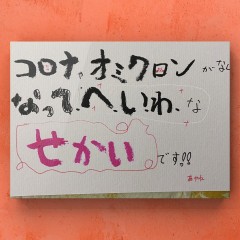 コロナ、オミクロンがなく
なって、へいわ、な
せかいです!!
あやね